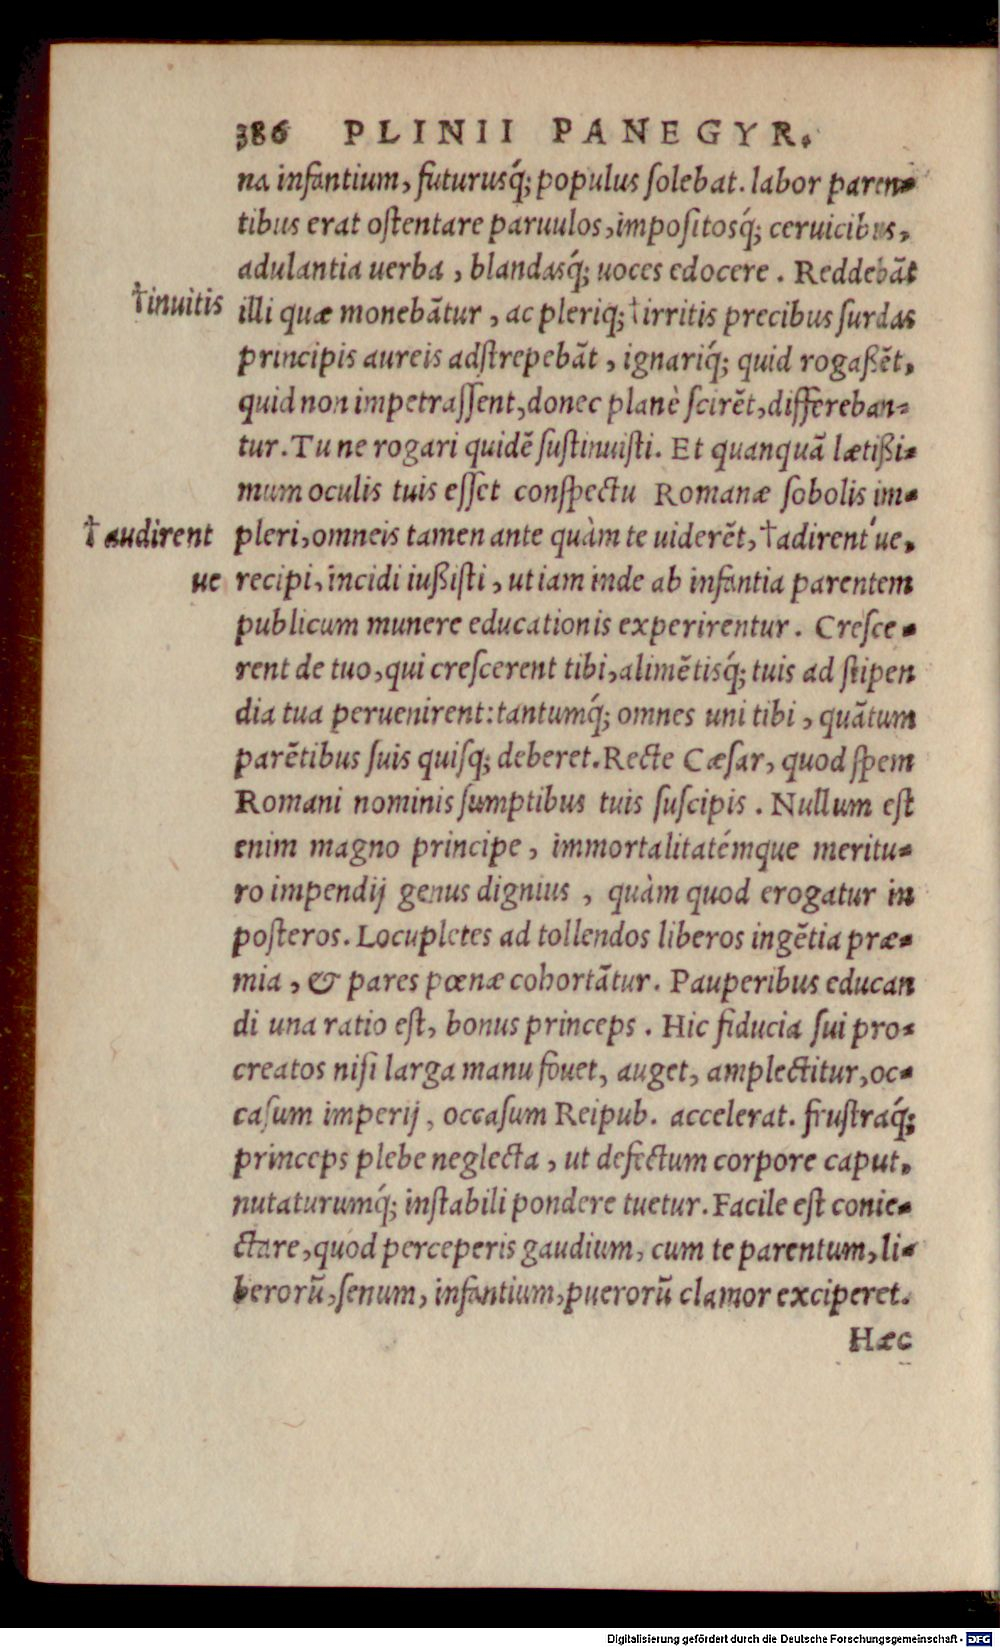 386 PLINII PANEGYR.
na infantium, futurusq́; populus ſolebat. labor paren-
tibus erat oſtentare paruulos, impoſitosq́; ceruicibus,
adulantia uerba, blandasq́; uoces edocere. Reddebāt
†inuitis
illi quæ monebātur, ac pleriq; †irritis precibus ſurdas
principis aureis adſtrepebāt, ignariq́; quid rogaßēt,
quid non impetraſſent, donec planè ſcirēt, differeban-
tur. Tu ne rogari quidē ſuſtinuiſti. Et quanquā lætißi-
mum oculis tuis eſſet conſpectu Romanæ ſobolis im-
† audirent
pleri, omneis tamen ante quàm te uiderēt, †adirent úe,
ue
recipi, incidi iußiſti, ut iam inde ab infantia parentem
publicum munere educationis experirentur. Creſce-
rent de tuo, qui creſcerent tibi, alimētisq́; tuis ad ſtipen
dia tua peruenirent: tantumq́; omnes uni tibi, quātum
parētibus ſuis quiſq; deberet. Recte Cæſar, quod ſpem
Romani nominis ſumptibus tuis ſuſcipis. Nullum eſt
enim magno principe, immortalitatémque meritu-
ro impendij genus dignius, quàm quod erogatur in
poſteros. Locupletes ad tollendos liberos ingētia præ-
mia, & pares pœnæ cohortātur. Pauperibus educan
di una ratio eſt, bonus princeps. Hic fiducia ſui pro-
creatos niſi larga manu fouet, auget, amplectitur, oc-
caſum imperij, occaſum Reipub. accelerat. fruſtraq́;
princeps plebe neglecta, ut defectum corpore caput,
nutaturumq́; inſtabili pondere tuetur. Facile eſt conie-
ctare, quod perceperis gaudium, cum te parentum, li-
berorū, ſenum, infantium, puerorū clamor exciperet.
Hæc
Digitalisierung gefördert durch die Deutsche Forschungsgemeinschaft - DFG